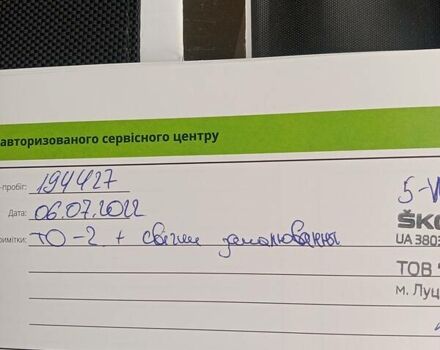 авторизованого сервісного центру
-пробіг: 194427
Дата: 06.07.2022
римітки: ТО-2 + свічки запалювання
5-
ŠKO
UA 3803
ТОВ
м. Луц